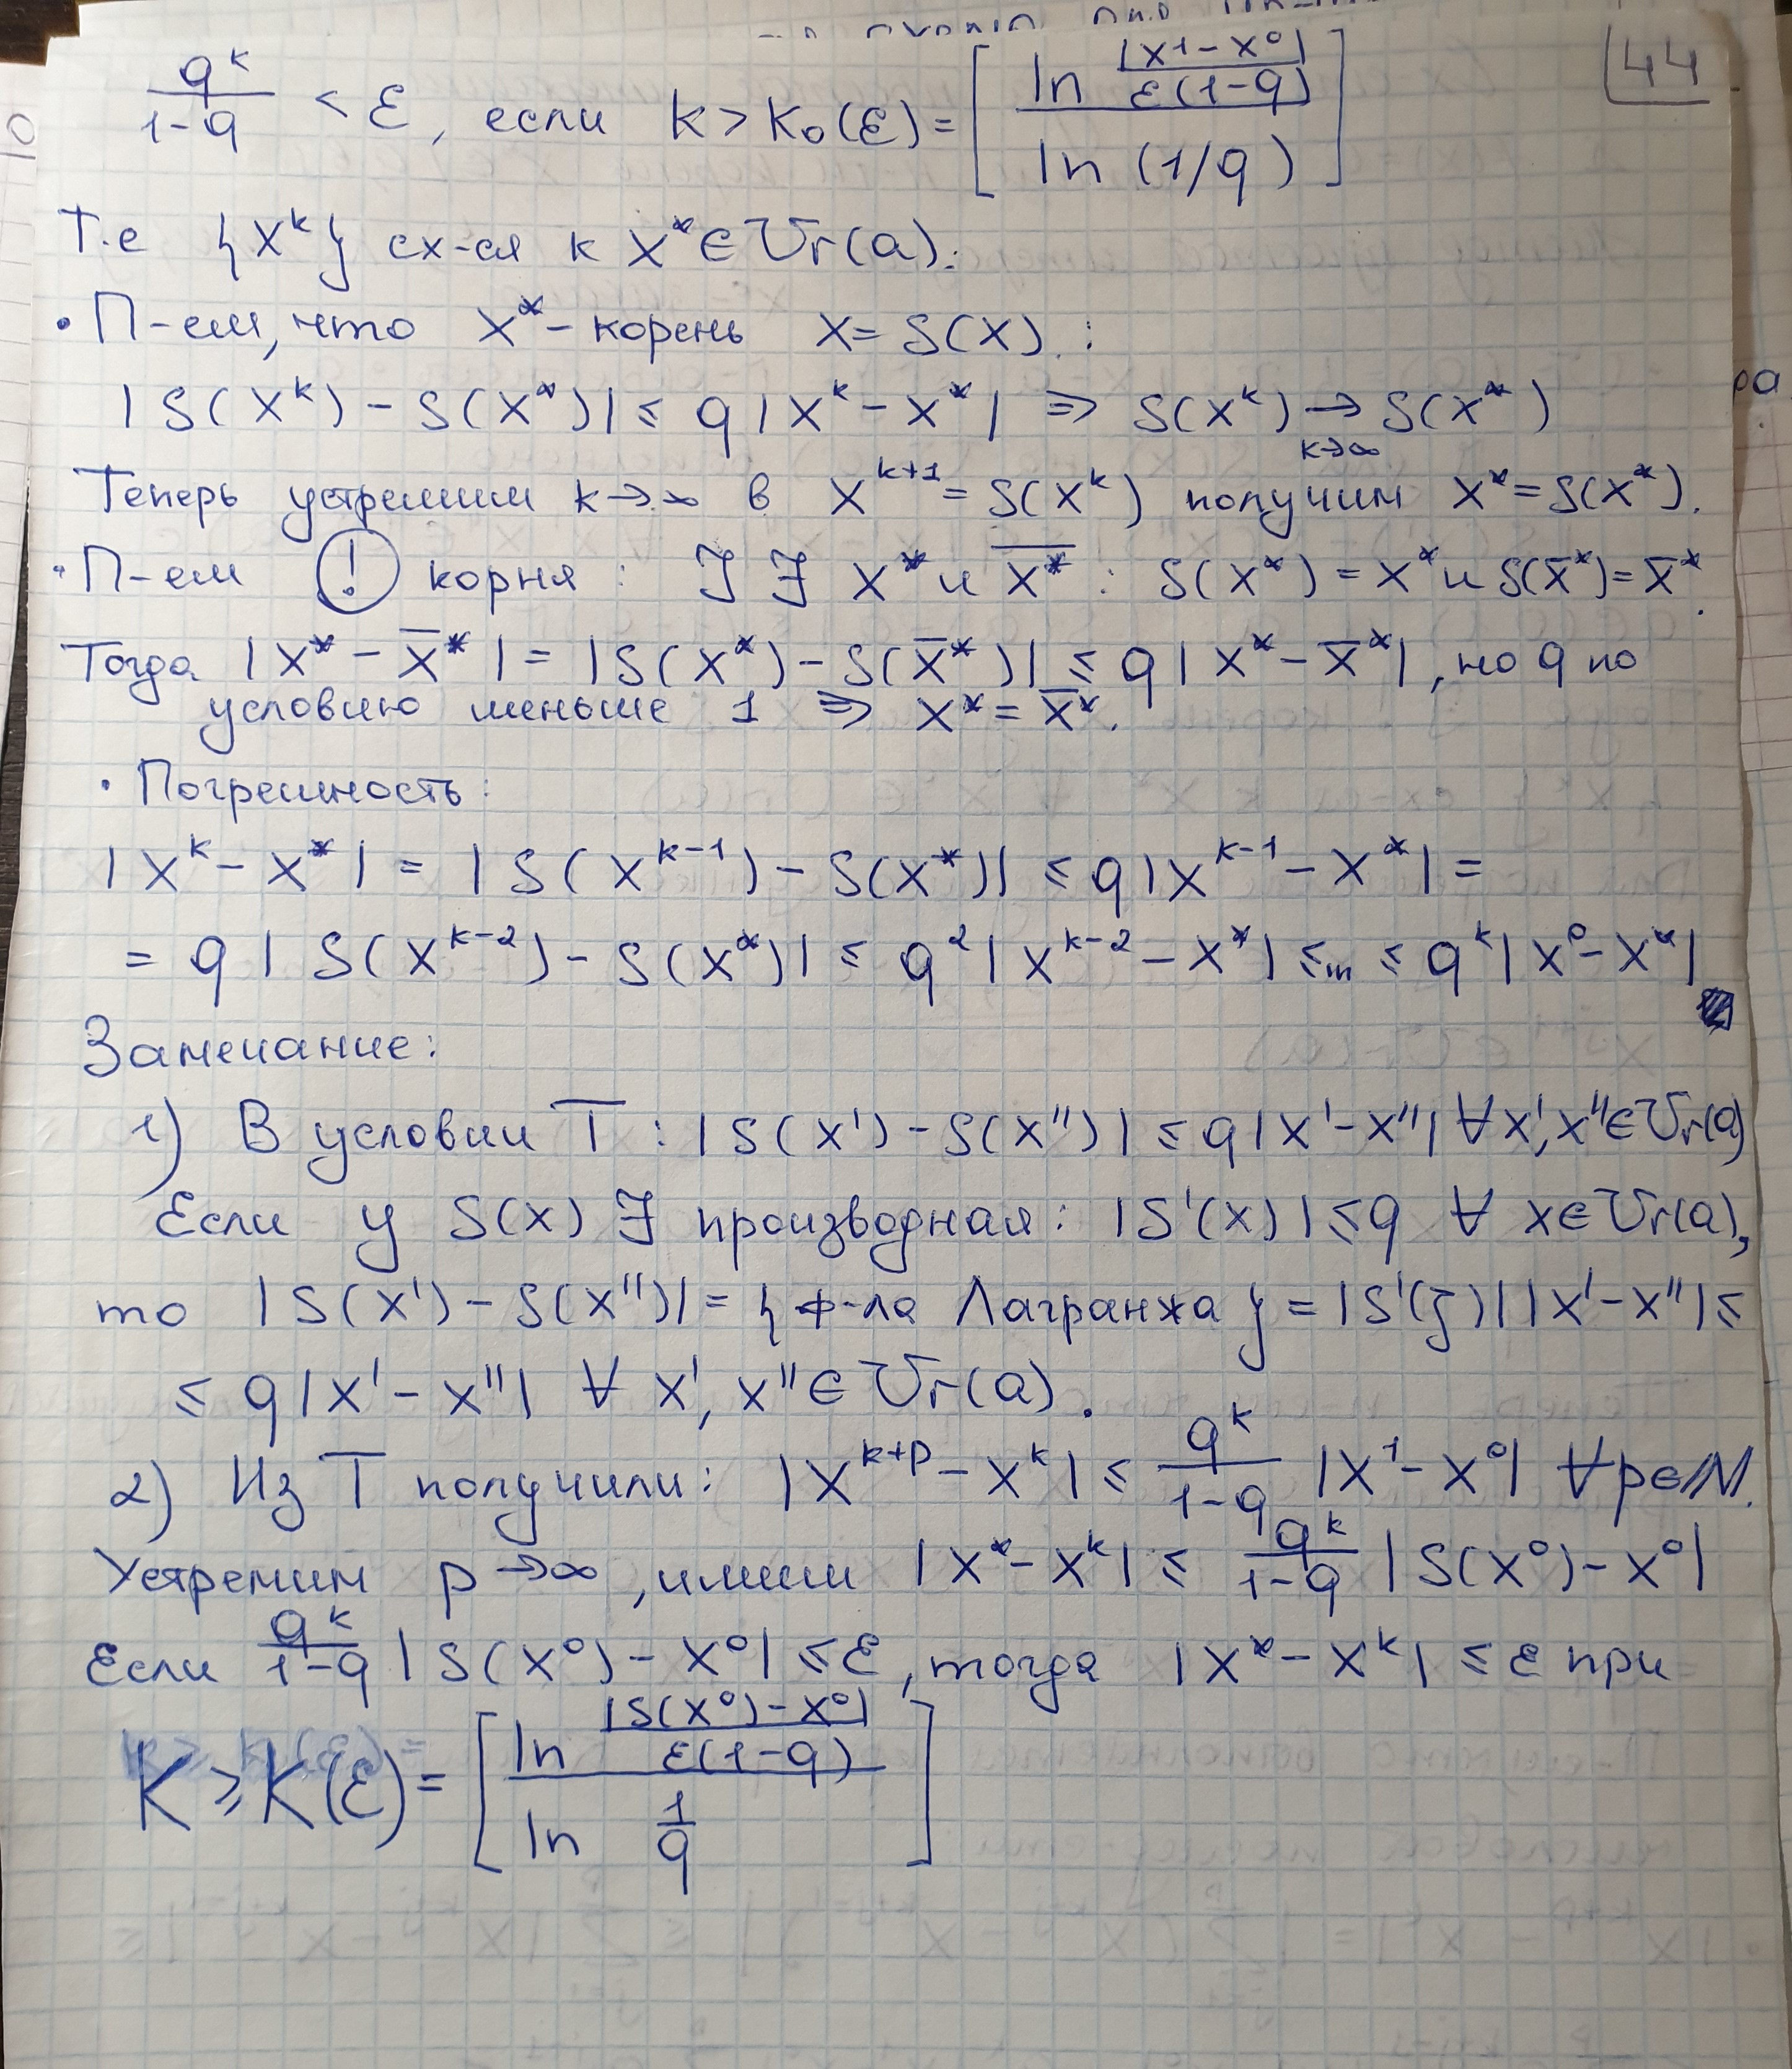 44
q^k / (1-q) < ε, если k > k₀(ε) = [ ln (|x¹ - x⁰| / ε(1-q)) / ln (1/q) ]
Т.е {x^k} сх-ся к x* ∈ Ur(a).
• П-ем, что x* - корень x = S(x) :
|S(x^k) - S(x*)| ≤ q |x^k - x*| ⇒ S(x^k) →_{k→∞} S(x*)
Теперь устремим k→∞ в x^{k+1} = S(x^k) получим x* = S(x*).
• П-ем (!) корня : ∃ ∃ x* и x̄* : S(x*) = x* и S(x̄*) = x̄*.
Тогда |x* - x̄*| = |S(x*) - S(x̄*)| ≤ q |x* - x̄*|, но q по
условию меньше 1 ⇒ x* = x̄*.
• Погрешность:
|x^k - x*| = |S(x^{k-1}) - S(x*)| ≤ q |x^{k-1} - x*| =
= q |S(x^{k-2}) - S(x*)| ≤ q² |x^{k-2} - x*| ≤ ... ≤ q^k |x⁰ - x*|
Замечание:
1) В условии Т : |S(x') - S(x'')| ≤ q |x' - x''| ∀ x', x'' ∈ Ur(a)
Если у S(x) ∃ производная : |S'(x)| ≤ q ∀ x ∈ Ur(a),
то |S(x') - S(x'')| = { ф-ла Лагранжа } = |S'(ξ)| |x' - x''| ≤
≤ q |x' - x''| ∀ x', x'' ∈ Ur(a).
2) Из Т получили: |x^{k+p} - x^k| ≤ q^k / (1-q) |x¹ - x⁰| ∀ p ∈ N.
Устремим p→∞, имеем |x* - x^k| ≤ q^k / (1-q) |S(x⁰) - x⁰|
Если q^k / (1-q) |S(x⁰) - x⁰| ≤ ε, тогда |x* - x^k| ≤ ε при
K ≥ K(ε) = [ ln (|S(x⁰) - x⁰| / ε(1-q)) / ln (1/q) ]